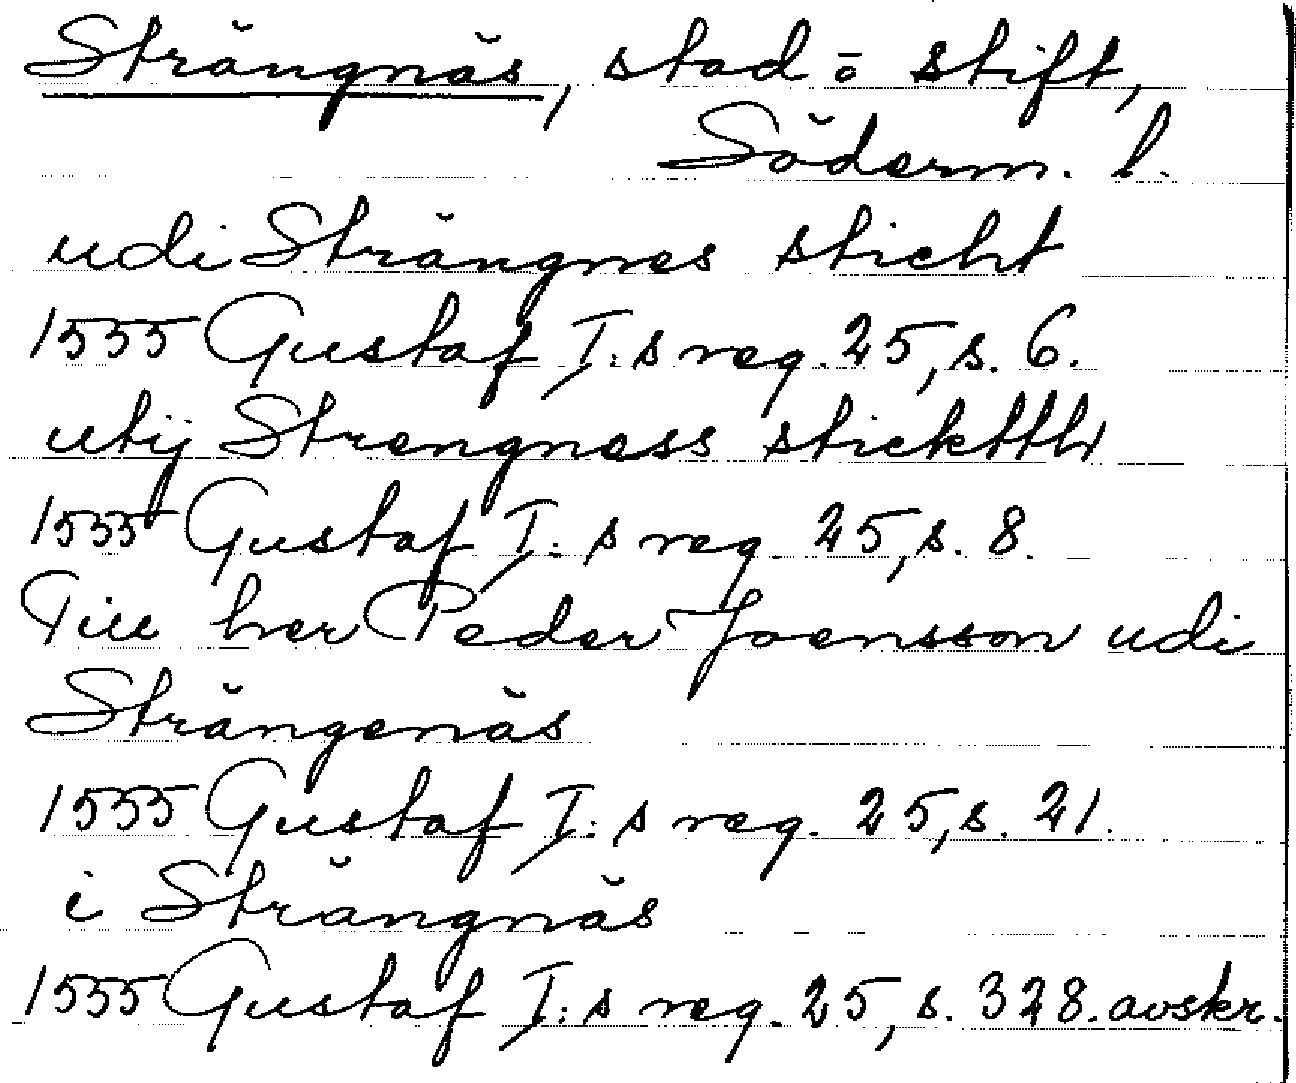 Strängnäs, stad o stift,
Söderm. l.
udi Strängnes sticht
1555 Gustaf I:s reg. 25, s. 6.
utij Strengness sticktth
1555 Gustaf I:s reg. 25, s. 8.
Till her Peder Joensson udi
Strängenäs
1555 Gustaf I:s reg. 25, s. 21.
i Strängnäs
1555 Gustaf I:s reg. 25, s. 328. avskr.